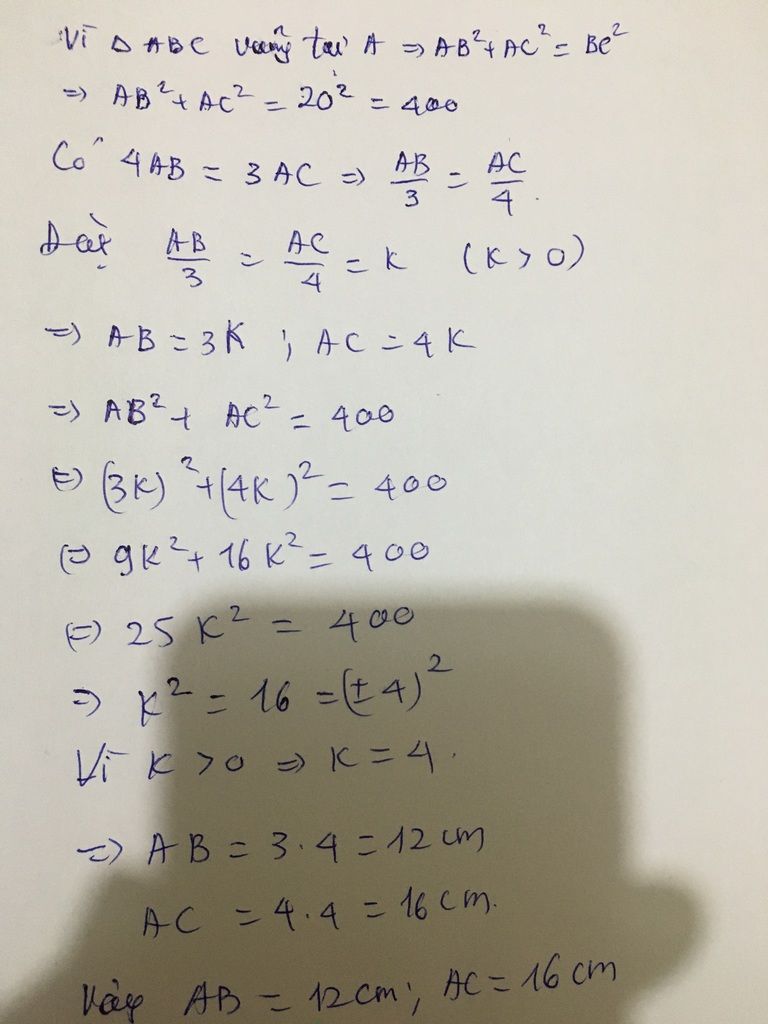 Vì Δ ABC vuông tại A => AB²+AC² = BC²
=> AB²+AC² = 20² = 400
Có 4AB = 3AC => AB/3 = AC/4.
Đặt AB/3 = AC/4 = K (K > 0)
=> AB = 3K ; AC = 4K
=> AB²+ AC² = 400
<=> (3K)²+(4K)² = 400
<=> 9K²+ 16K² = 400
<=> 25K² = 400
=> K² = 16 = (±4)²
Vì K > 0 => K = 4.
=> AB = 3.4 = 12 cm
AC = 4.4 = 16 cm.
Vậy AB = 12 cm; AC = 16 cm